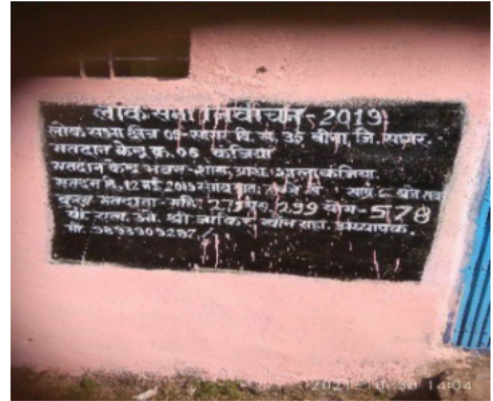 लोक सभा निर्वाचन- 2019
लोक सभा क्षेत्र 05-सागर वि. स. 35 बीना, जि. सागर.
मतदान केन्द्र क्र. 06 कंजिया
मतदान केन्द्र भवन-शास. प्राथ. शाला कंजिया.
मतदान दि. 12 मई 2019 समय प्रातः 7 बजे से सायं 6 बजे तक
कुल मतदाता- महि. 279 पुरु. 299 योग- 578
बी. एल. ओ. श्री जाकिर खान सहा. अध्यापक.
मो. 9893909287
2021.10.30 14:04